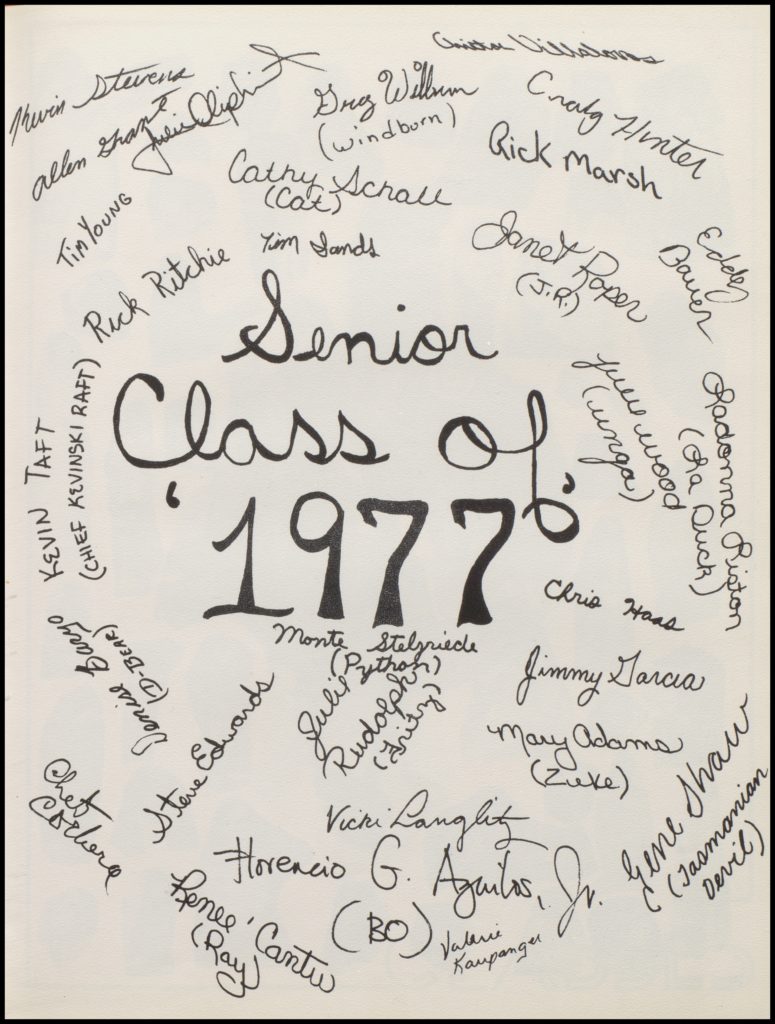 Villalovos
Kevin Stevens
Allen Grant
Julie Oliphint
Greg Wilburn
(windburn)
Craig Hinter
Rick Marsh
Cathy Schall
(Cat)
Tim Young
Tim Sands
Janet Roper
(J.R.)
Eddy
Bauer
Rick Ritchie
Senior
Class of
'1977'
Julie Wood
(unga)
Ladonna Riston
(La Duck)
KEVIN TAFT
(CHIEF KEVINSKI RAFT)
Chris Haas
Monte Stelzriede
(Python)
Denise Baryo
(D-BEAR)
Julie
Rudolph
(Fruity)
Jimmy Garcia
Steve Edwards
Mary Adams
(Zieke)
Gene Shaw
(Tasmanian
Devil)
Chet
Vicki Langlitz
Florencio G. Aguilos, Jr.
(BO)
Renee' Cantu
(Ray)
Valerie
Kaupanger